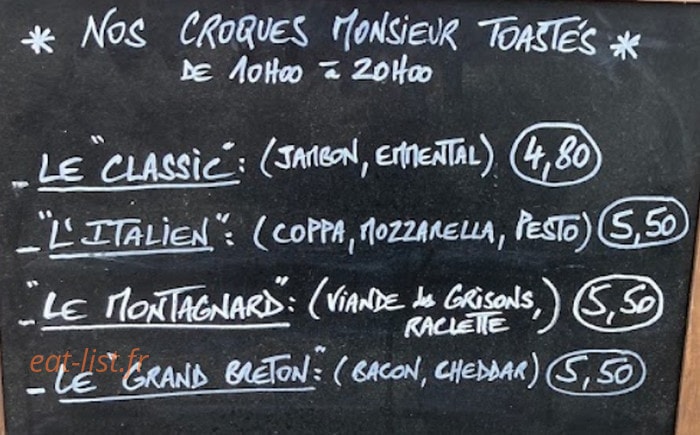 * NOS CROQUES MONSIEUR TOASTÉS *
DE 10H00 à 20H00
- LE "CLASSIC": (JAMBON, EMMENTAL) 4,80
- "L'ITALIEN": (COPPA, MOZZARELLA, PESTO) 5,50
- "LE MONTAGNARD": (VIANDE des GRISONS, RACLETTE) 5,50
eat-list.fr
- LE "GRAND BRETON": (BACON, CHEDDAR) 5,50